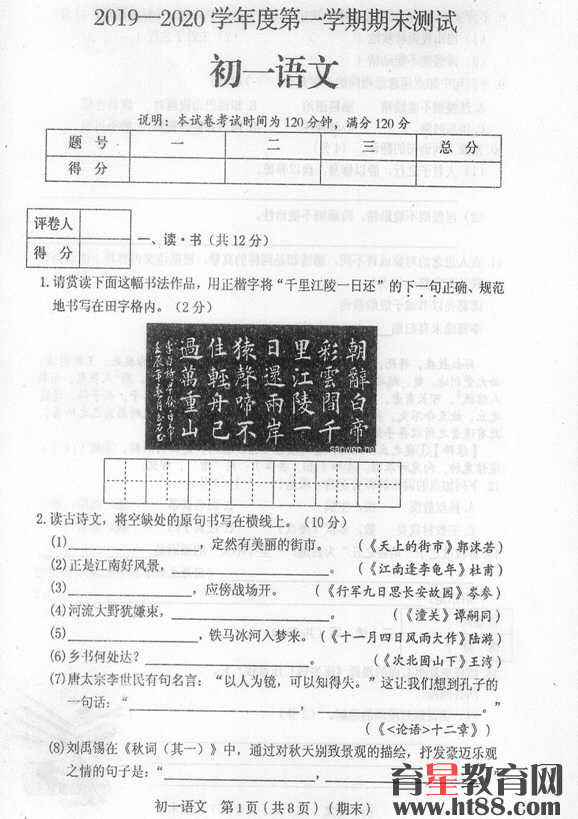 2019—2020学年度第一学期期末测试
初一语文
说明：本试卷考试时间为120分钟，满分120分
题 号 一 二 三 总 分
得 分
评卷人
得 分
一、读·书（共12分）
1.请赏读下面这幅书法作品，用正楷字将“千里江陵一日还”的下一句正确、规范
地书写在田字格内。（2分）
朝辭白帝
彩雲間千
里江陵一
日還兩岸
猿聲啼不
住輕舟已
過萬重山
sanwen.net
2.读古诗文，将空缺处的原句书写在横线上。（10分）
(1)____________________，定然有美丽的街市。 （《天上的街市》郭沫若）
(2)正是江南好风景，____________________。 （《江南逢李龟年》杜甫）
(3)____________________，应傍战场开。 （《行军九日思长安故园》岑参）
(4)河流大野犹嫌束，____________________。 （《潼关》谭嗣同）
(5)____________________，铁马冰河入梦来。（《十一月四日风雨大作》陆游）
(6)乡书何处达？____________________。 （《次北固山下》王湾）
(7)唐太宗李世民有句名言：“以人为镜，可以知得失。”这让我们想到孔子的
一句话：“____________________，____________________。”
（《<论语>十二章》）
(8)刘禹锡在《秋词（其一）》中，通过对秋天别致景观的描绘，抒发豪迈乐观
之情的句子是：“____________________，____________________
初一语文 第1页（共8页）（期末）
育星教育网
www.ht88.com